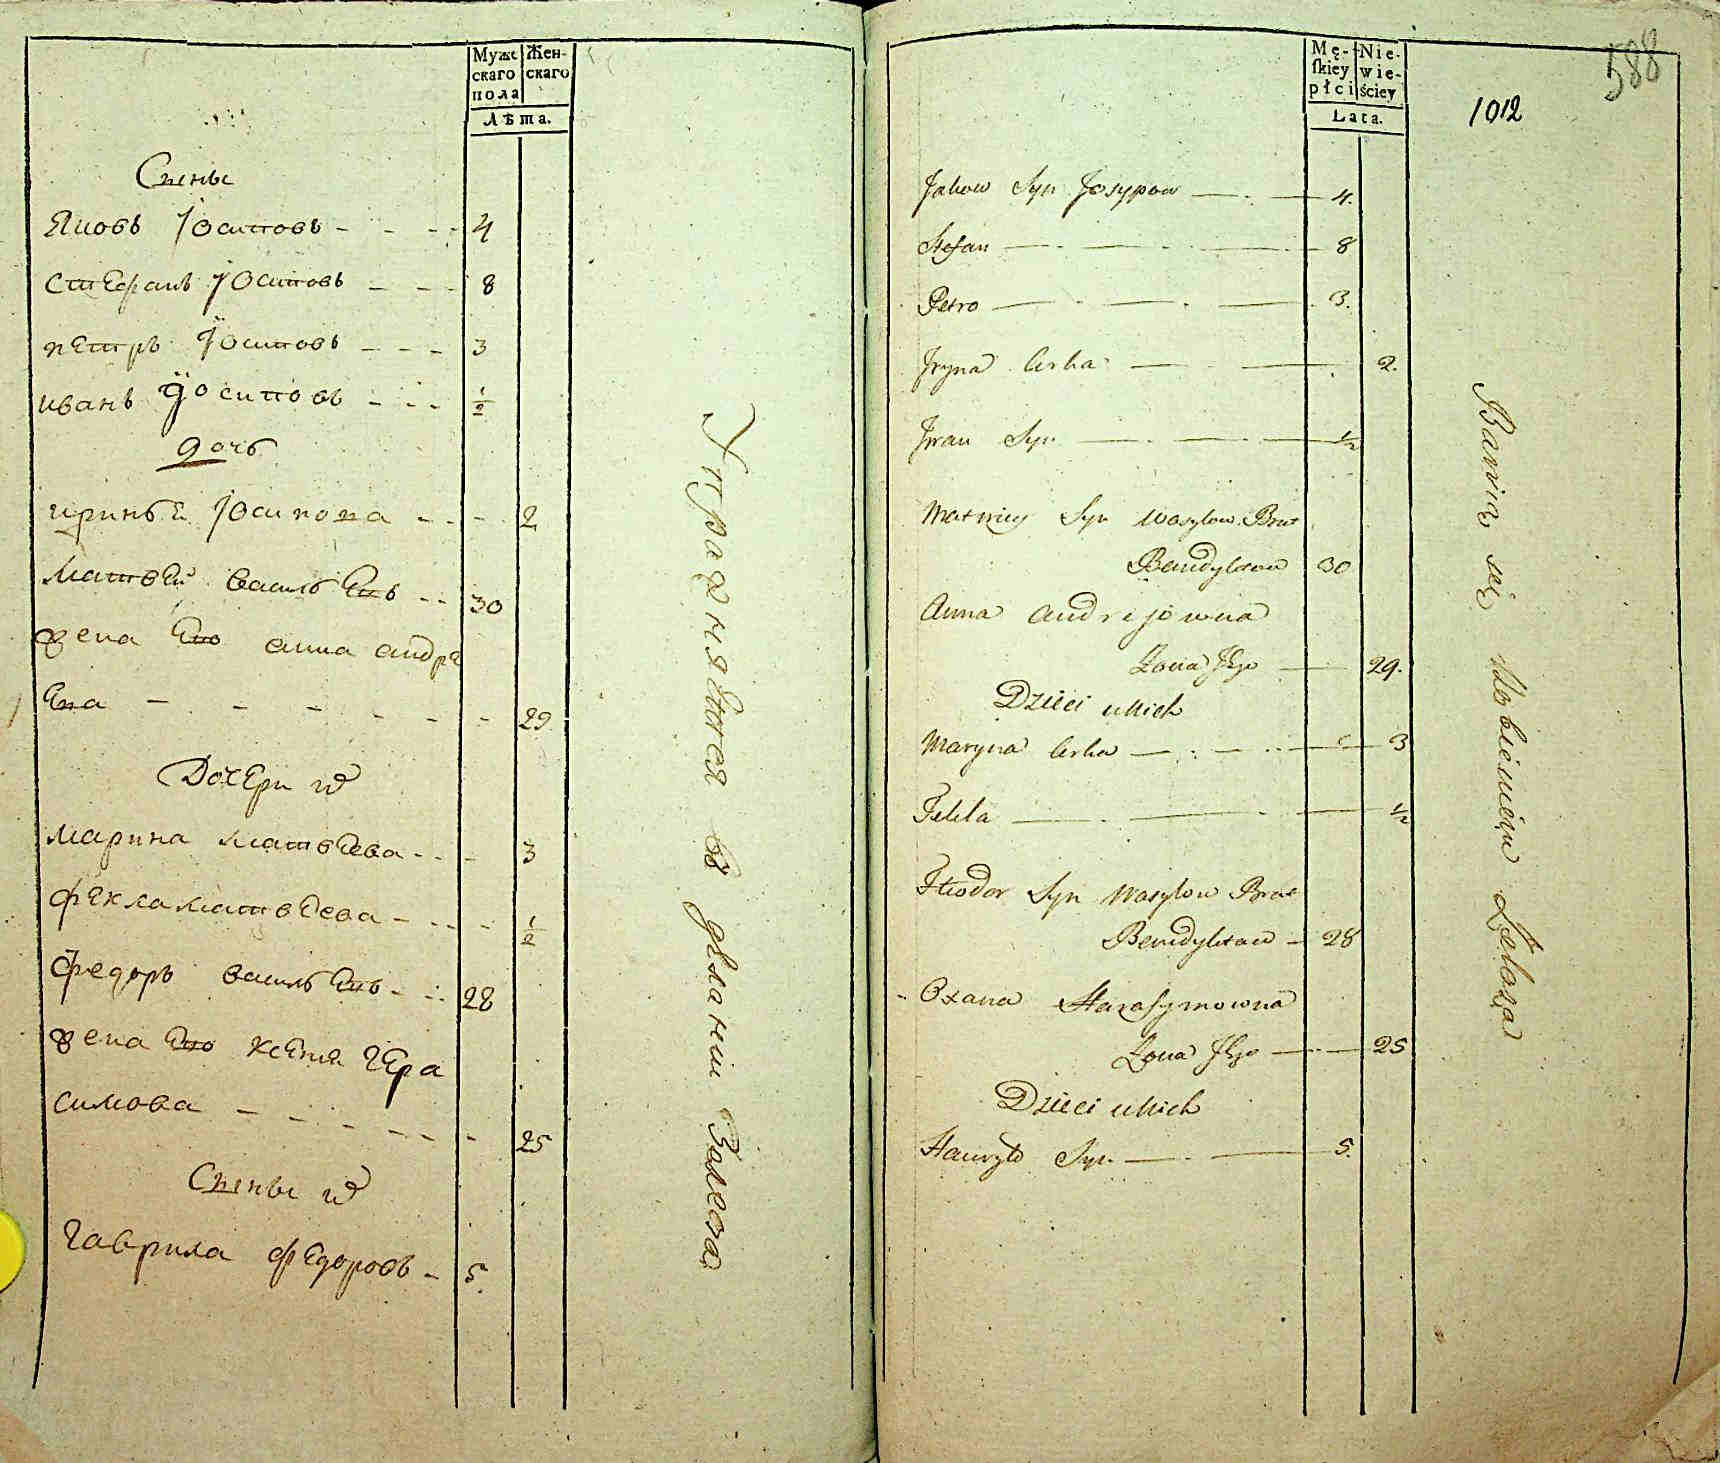 Муже
скаго
пола
Жен-
скаго
Лѣта.
Сыны
Яковъ Іосиповъ - - - - 4
Стефанъ Іосиповъ - - - 8
петръ Іосиповъ - - - 3
иванъ Іосиповъ - - - ½
дочь
Іосипова - - - 2
Матвей василь евъ - - 30
жена Его анна андре
Ева - - - - - - - 29
Дочери их
Марина Матвеева - - - 3
фекла матвеева - - - - ½
Федоръ василь евъ - - - 28
жена Его Гера
симова - - - - - - 25
Сыны их
Гаврила федоровъ - 5.
Упражняются в деланіи Железа
Mę-
skiey
płci
Nie-
wie-
ściey
Lata.
588
1012
Jakow Syn Josypow 4.
Stefan 8
Petro 3.
Jryna Corka 2.
Jwan Syn ½
Matwiey Syn Wasylow Brat
Bendykow 30
Anna Andrejowna
Żona Jego 29.
Dzieci u Nich
Maryna Corka 3
Tekla ½
Fteodor Syn Wasylow Brat
28
Oxana Harasymowna
Żona Jego 25
Dzieci u Nich
Hawryło Syn 5.
Bawią się Robieniem Żelaza